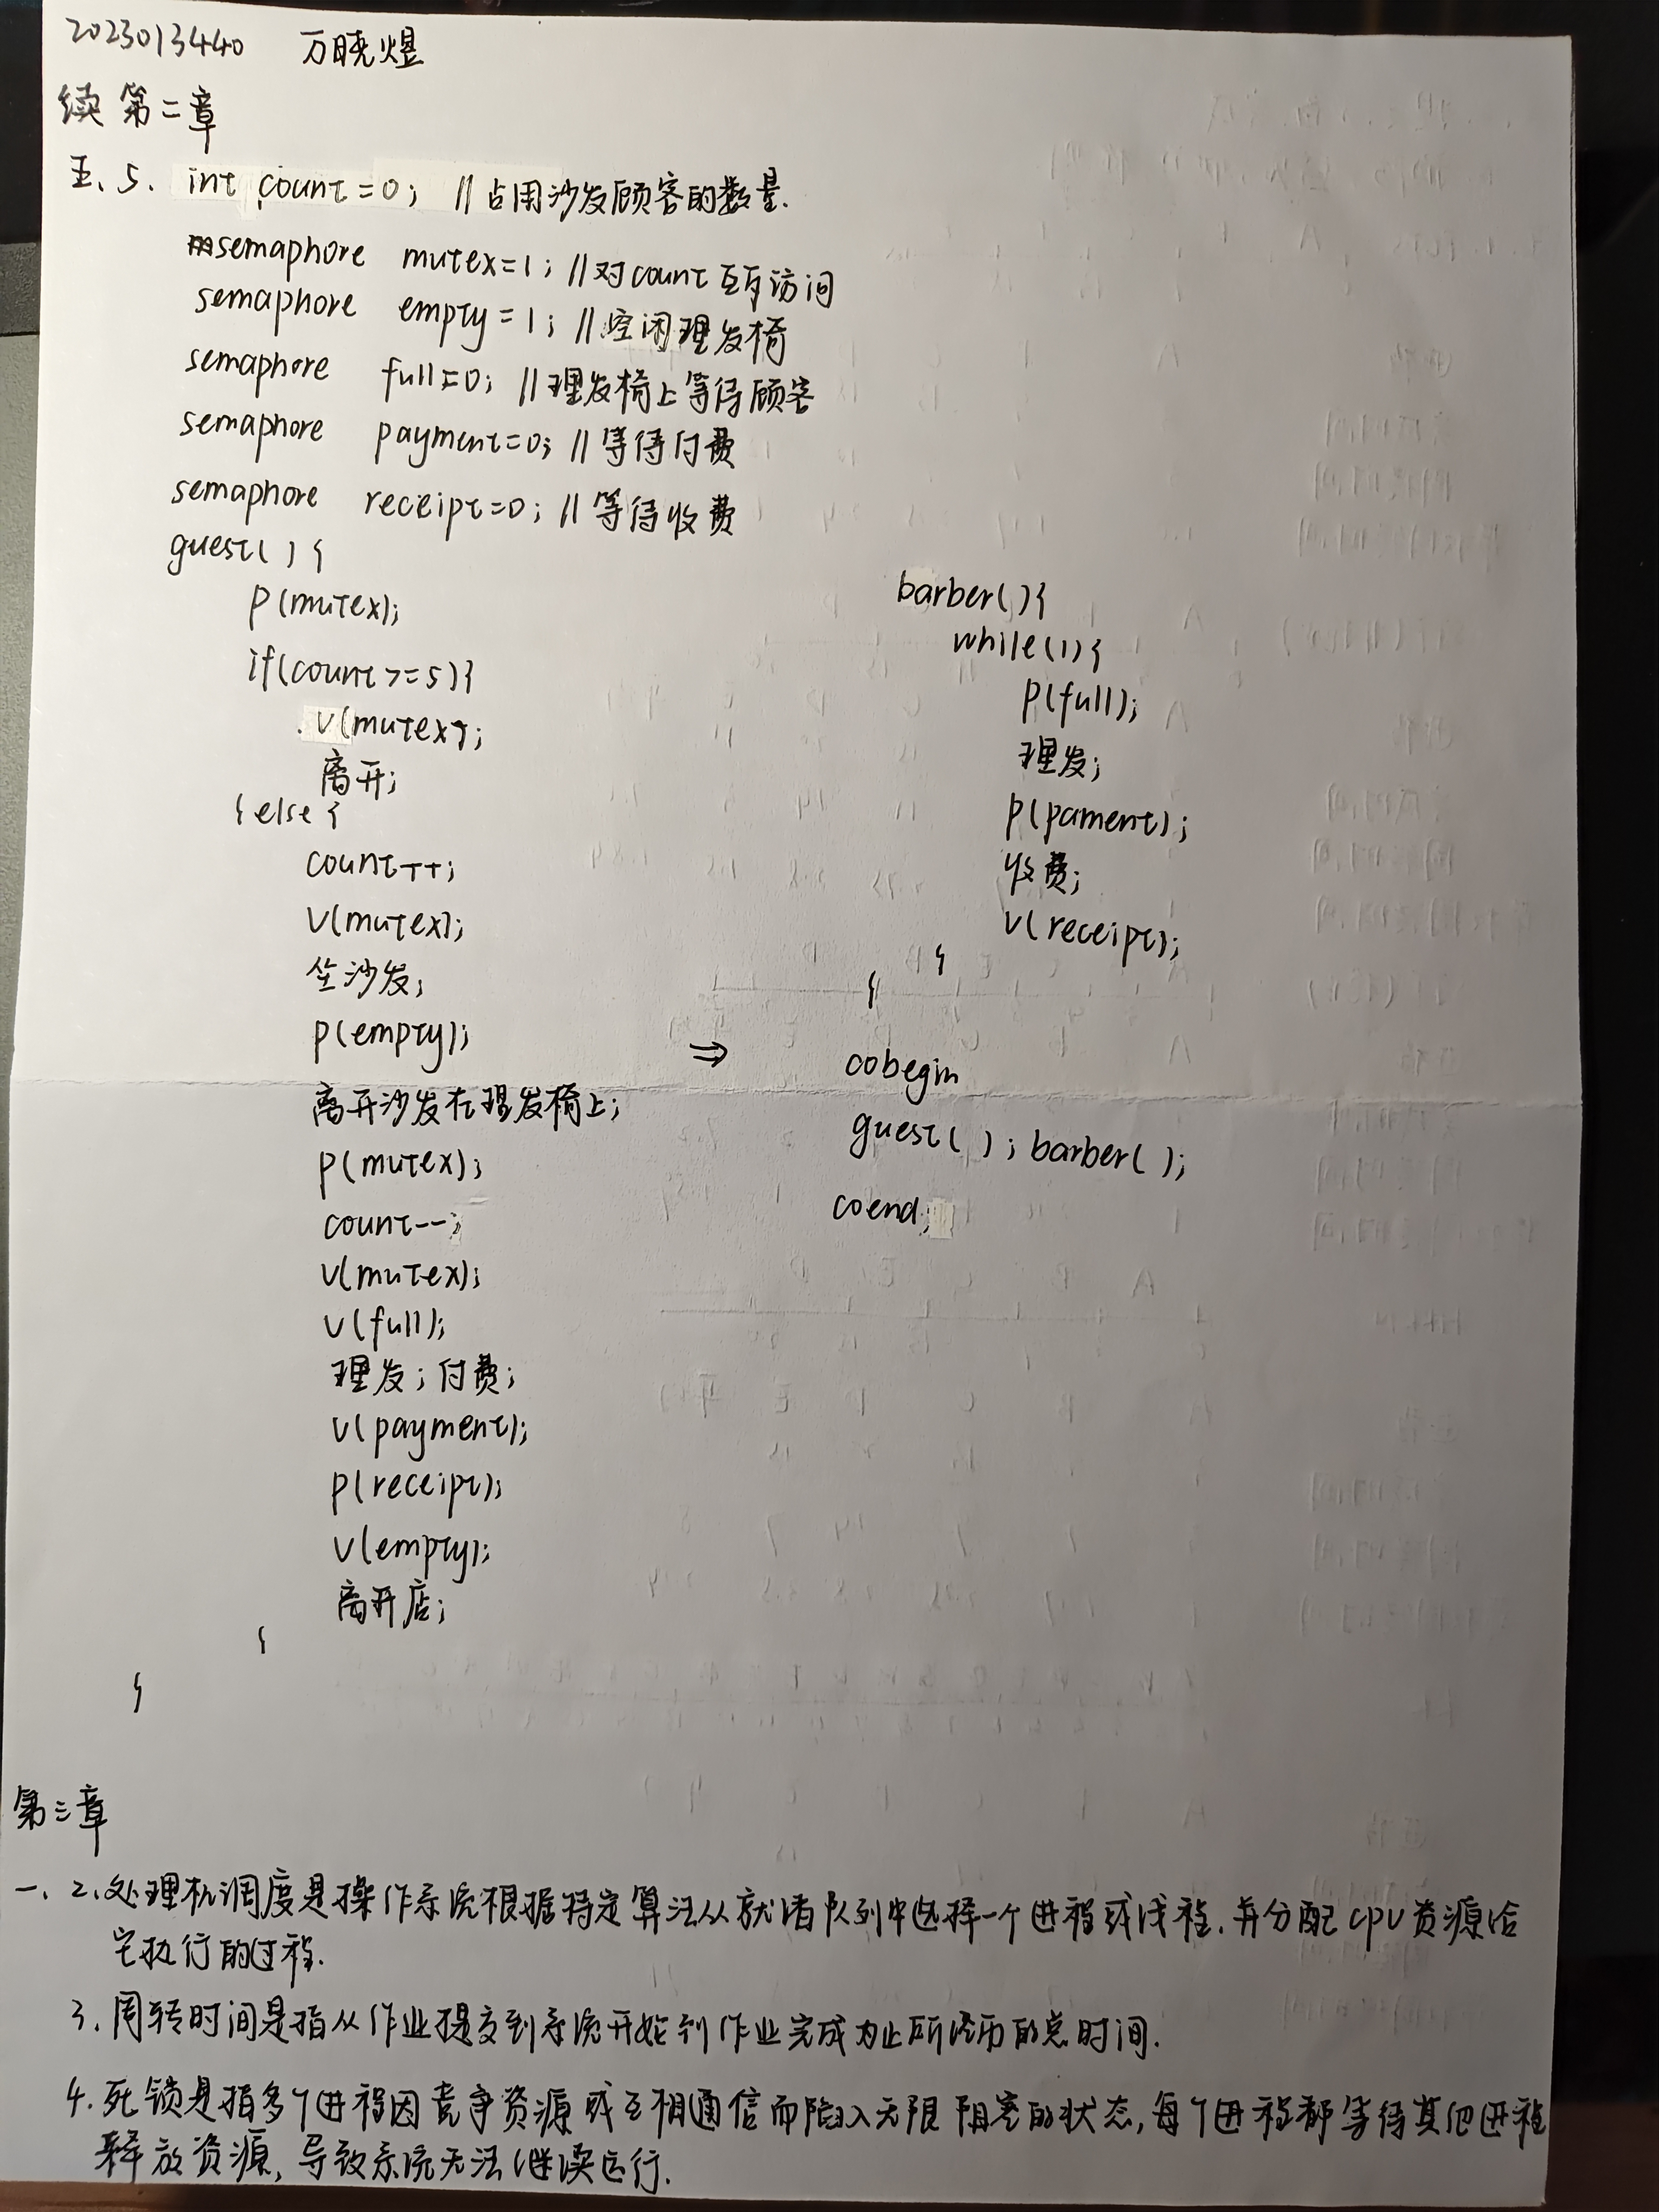 2023013440 万晓煜
续 第二章
五、5. int count=0; //占用沙发顾客的数量.
semaphore mutex=1; //对count互斥访问
semaphore empty=1; //空闲理发椅
semaphore full=0; //理发椅上等待顾客
semaphore payment=0; //等待付费
semaphore receipt=0; //等待收费
guest(){
p(mutex);
if(count>=5){
v(mutex);
离开;
}else{
count++;
v(mutex);
坐沙发;
p(empty);
离开沙发在理发椅上;
p(mutex);
count--;
v(mutex);
v(full);
理发;付费;
v(payment);
p(receipt);
v(empty);
离开店;
}
}
barber(){
while(1){
p(full);
理发;
p(pament);
收费;
v(receipt);
}
}
⇒ cobegin
guest(); barber();
coend;
第三章
一、2.处理机调度是操作系统根据特定算法从就绪队列中选择一个进程或线程,并分配CPU资源给
它执行的过程.
3.周转时间是指从作业提交到系统开始到作业完成为止所经历的总时间.
4.死锁是指多个进程因竞争资源或互相通信而陷入无限阻塞的状态,每个进程都等待其他进程
释放资源,导致系统无法继续运行.